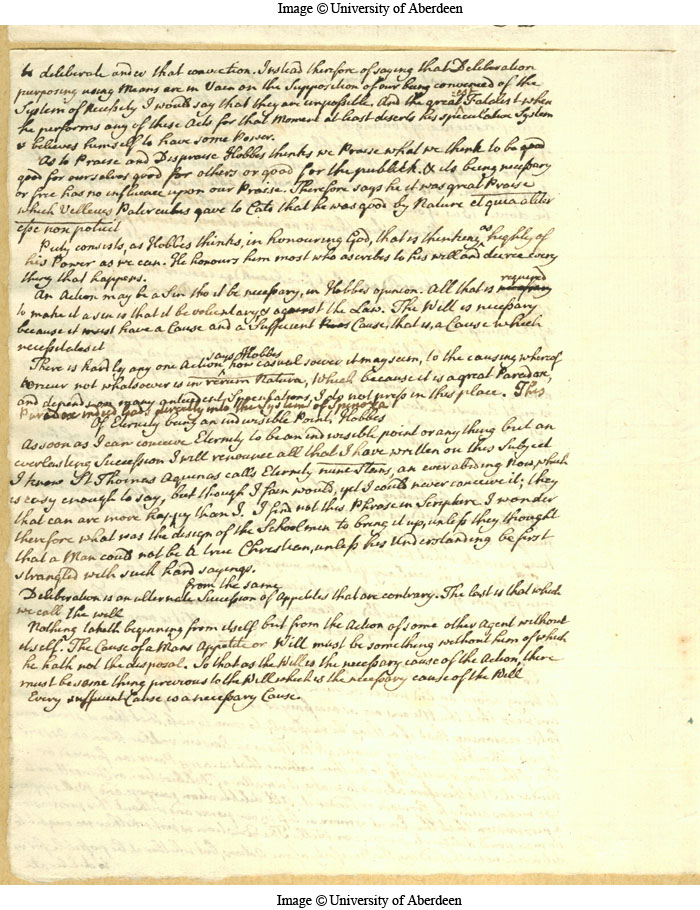 Image © University of Aberdeen
to deliberate under that conviction. Instead therefore of saying that Deliberation
purposing using Means are in Vain on the Supposition of our being convinced of the
System of Necessity I would say that they are impossible. And the great Fatalist when
he performs any of these Acts for that Moment at least deserts his speculative System
& believes himself to have some Power.
As to Praise and Dispraise Hobbes thinks we Praise what we think to be good
good for ourselves good for others or good for the publick. & its being necessary
or free has no influence upon our Praise. Therefore says he it was great Praise
which Velleius Paterculus gave to Cato that he was good by Nature et quia aliter
esse non potuit
Piety consists, as Hobbes thinks, in honouring God, that is thinking as highly of
his Power as we can. He honours him most who ascribes to his will and decree every
thing that happens.
An Action may be a Sin tho it be necessary, in Hobbes opinion. All that is required
to make it a sin is that it be voluntary & against the Law. The Will is necessary
because it must have a Cause and a Sufficient Cause, that is, a Cause which
necessitates it
There is hardly any one Action, says Hobbes how casual soever it may seem, to the causing whereof
concur not whatsoever is in rerum Natura, Which because it is a great Paradox,
and depends on many antecedent Speculations, I do not press in this place. This
Paradox indeed leads directly into the Systems of Spinosa
Of Eternity being an indivisible Point, Hobbes
As soon as I can conceive Eternity to be an indivisible point or any thing but an
everlasting Succession I will renounce all that I have written on this Subject
I know St Thomas Aquinas calls Eternity nunc Stans, an ever abiding Now, which
is easy enough to say, but though I fain would, yet I could never conceive it; they
that can are more happy than I. I find not this Phrase in Scripture I wonder
therefore what was the design of the Schoolmen to bring it up, unless they thought
that a Man could not be a true Christian, unless his Understanding be first
strangled with such hard sayings.
from the same
Deliberation is an alternate Succession of Appetites that are contrary. The last is that which
we call the will
Nothing taketh beginning from itself but from the Action of some other Agent without
itself. The Cause of a Mans Appetite or Will must be something without them of which
he hath not the disposal. So that as the Will is the necessary cause of the Action, there
must be some thing previous to the Will which is the necessary cause of the Will
Every sufficient Cause is a necessary Cause
Image © University of Aberdeen